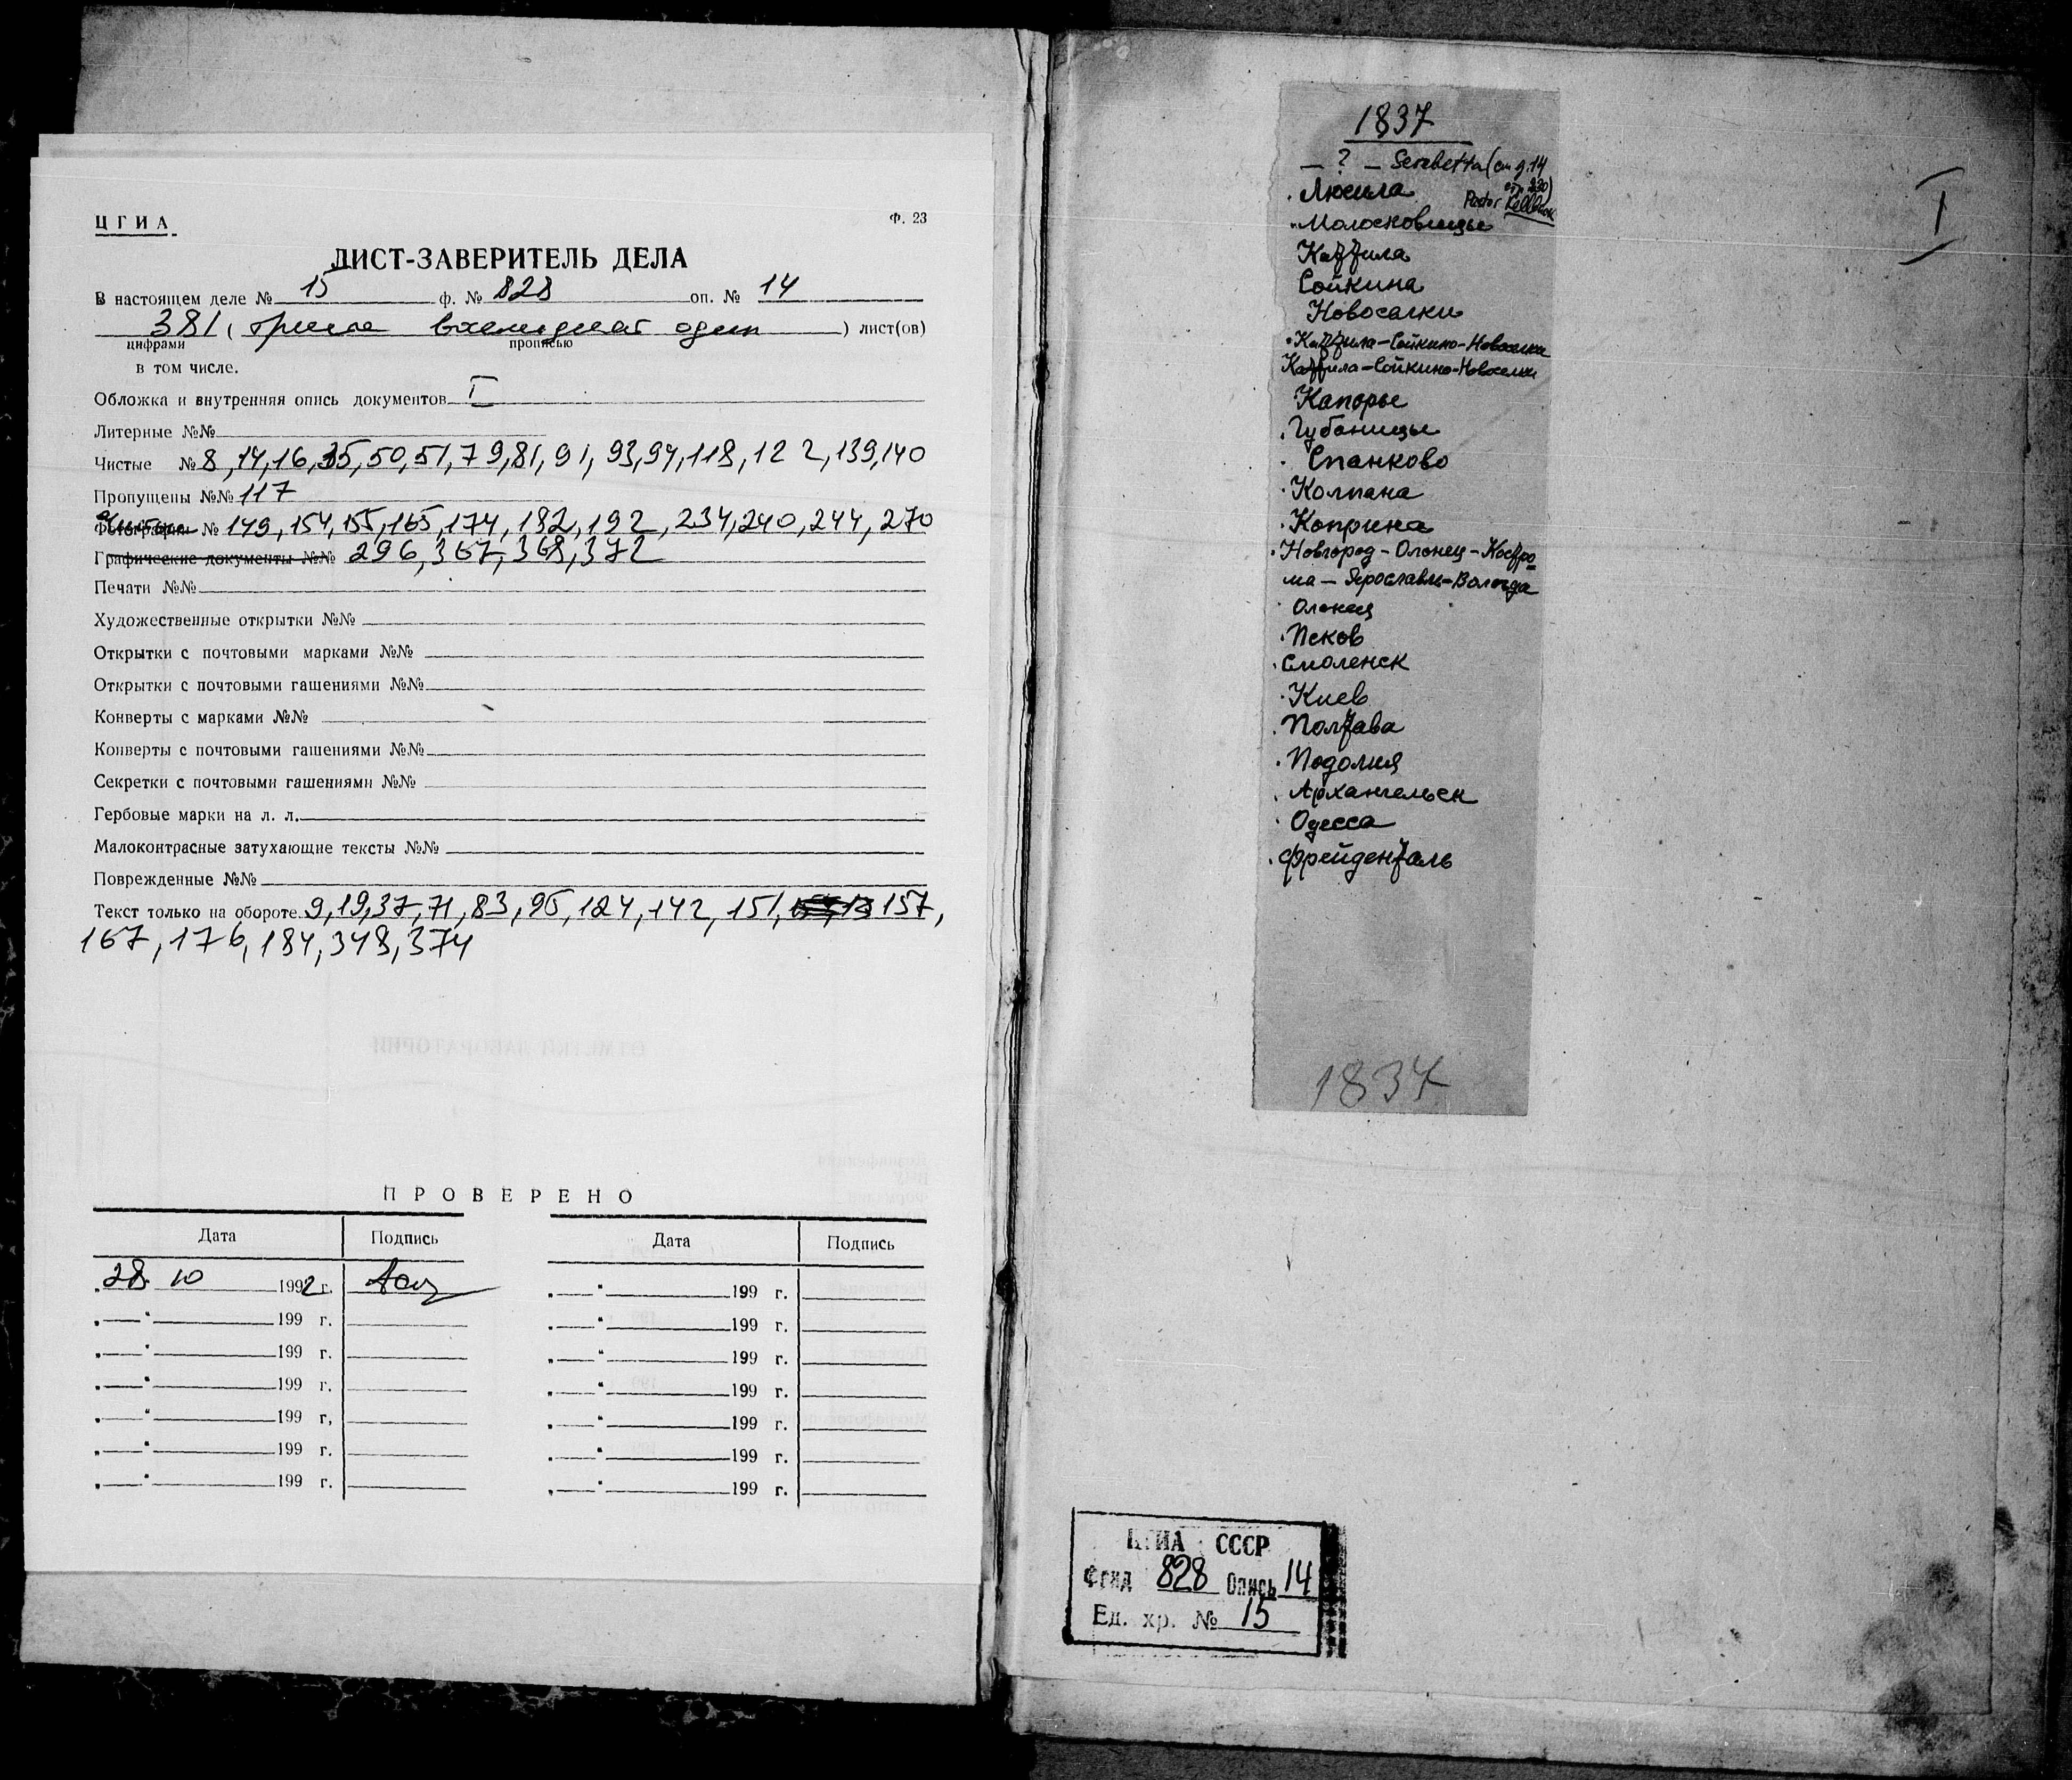 ЦГИА
Ф. 23
ЛИСТ-ЗАВЕРИТЕЛЬ ДЕЛА
В настоящем деле № 15 ф. № 828 оп. № 14
381 (триста восемьдесят один) лист(ов)
цифрами прописью
в том числе.
Обложка и внутренняя опись документов I
Литерные №№
Чистые № 8, 14, 16, 35, 50, 51, 79, 81, 91, 93, 94, 118, 122, 139, 140
Пропущены №№ 117
Фотографии № 149, 154, 155, 165, 174, 182, 192, 234, 240, 244, 270
Графические документы №№ 296, 367, 368, 372
Печати №№
Художественные открытки №№
Открытки с почтовыми марками №№
Открытки с почтовыми гашениями №№
Конверты с марками №№
Конверты с почтовыми гашениями №№
Секретки с почтовыми гашениями №№
Гербовые марки на л. л.
Малоконтрасные затухающие тексты №№
Поврежденные №№
Текст только на обороте 9, 19, 37, 71, 83, 95, 124, 142, 151, 157,
167, 176, 184, 348, 374
ПРОВЕРЕНО
Дата Подпись Дата Подпись
28. 10 1992 г. „ “ 199 г.
„ “ 199 г. „ “ 199 г.
„ “ 199 г. „ “ 199 г.
„ “ 199 г. „ “ 199 г.
„ “ 199 г, „ “ 199 г.
„ “ 199 г. „ “ 199 г.
„ “ 199 г. „ “ 199 г.
I
1837
– ? – Serebetta (см д. 14
стр 230)
Pastor
Люсила
Молосковицы
Каттила
Сойкина
Новоселки
Каттила–Сойкино–Новоселки
Каттила–Сойкино–Новоселки
Капорье
Губаницы
Спанково
Колпана
Коприна
Новгород – Олонец – Костро-
ма – Ярославль – Вологда
Олонец
Псков
Смоленск
Киев
Полтава
Подолия
Архангельск
Одесса
Фрейденталь
1837
ЦГИА СССР
Фонд 828 Опись 14
Ед. хр. № 15